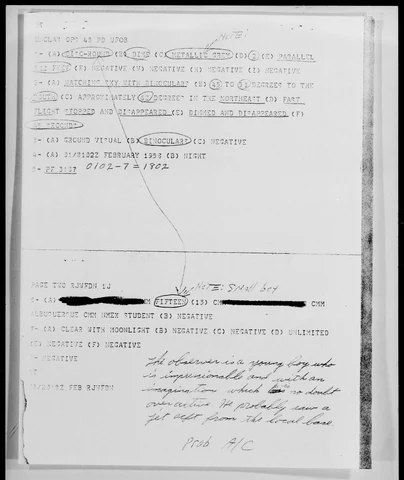 NOTE:
OPS 43 PD 0700
- (A) DISC-ROUND (B) DIME (C) METALLIC GREY (D) 2 (E) PARALLEL
(F) NEGATIVE (G) NEGATIVE (H) NEGATIVE (I) NEGATIVE
- (A) WATCHING SKY WITH BINOCULARS (B) 45 TO DEGREES TO THE
(C) APPROXIMATELY DEGREES IN THE NORTHEAST (D) FAST
FLIGHT STOPPED AND DISAPPEARED (E) DIMMED AND DISAPPEARED (F)
SECONDS
- (A) GROUND VISUAL (B) BINOCULARS (C) NEGATIVE
- (A) 01/0102Z FEBRUARY 1958 (B) NIGHT
0102-7=1802
PAGE TWO RJWFDN 1J
NOTE: Small boy
- (A) FIFTEEN (15) CMM
ALBUQUERQUE CMM NMEX STUDENT (B) NEGATIVE
- (A) CLEAR WITH MOONLIGHT (B) NEGATIVE (C) NEGATIVE (D) UNLIMITED
(E) NEGATIVE (F) NEGATIVE
- NEGATIVE
FEB RJWFDN
The observer is a young boy who
is impressionable and with an
imagination which is no doubt
over active. He probably saw a
jet acft from the local base.
Prob A/C